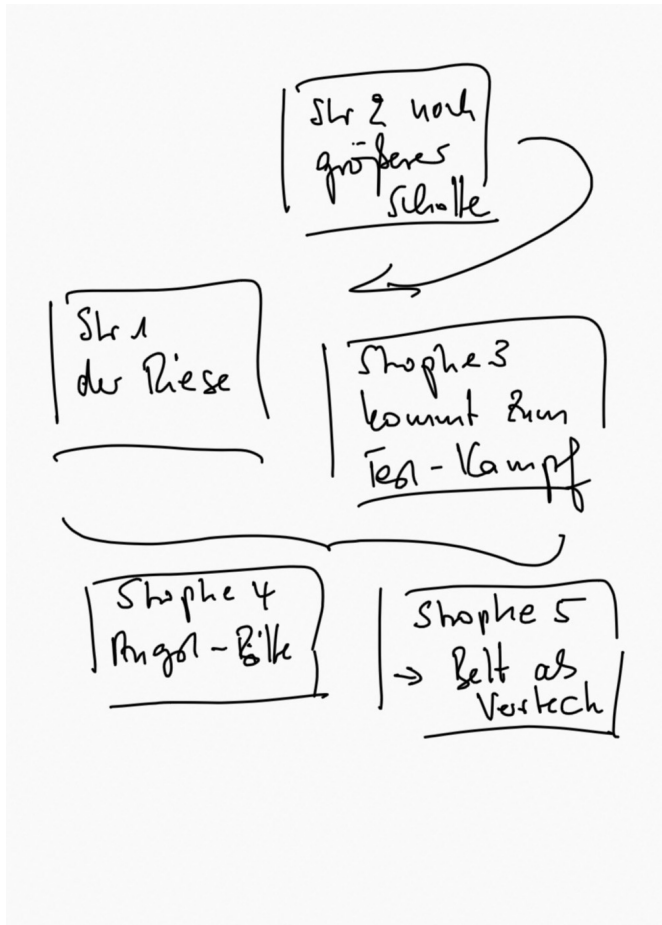 Str 2 noch
größerer
Schotte
Str 1
der Riese
Strophe 3
kommt zum
Test-Kampf
Strophe 4
Angst-Bitte
Strophe 5
→ Bett als
Versteck